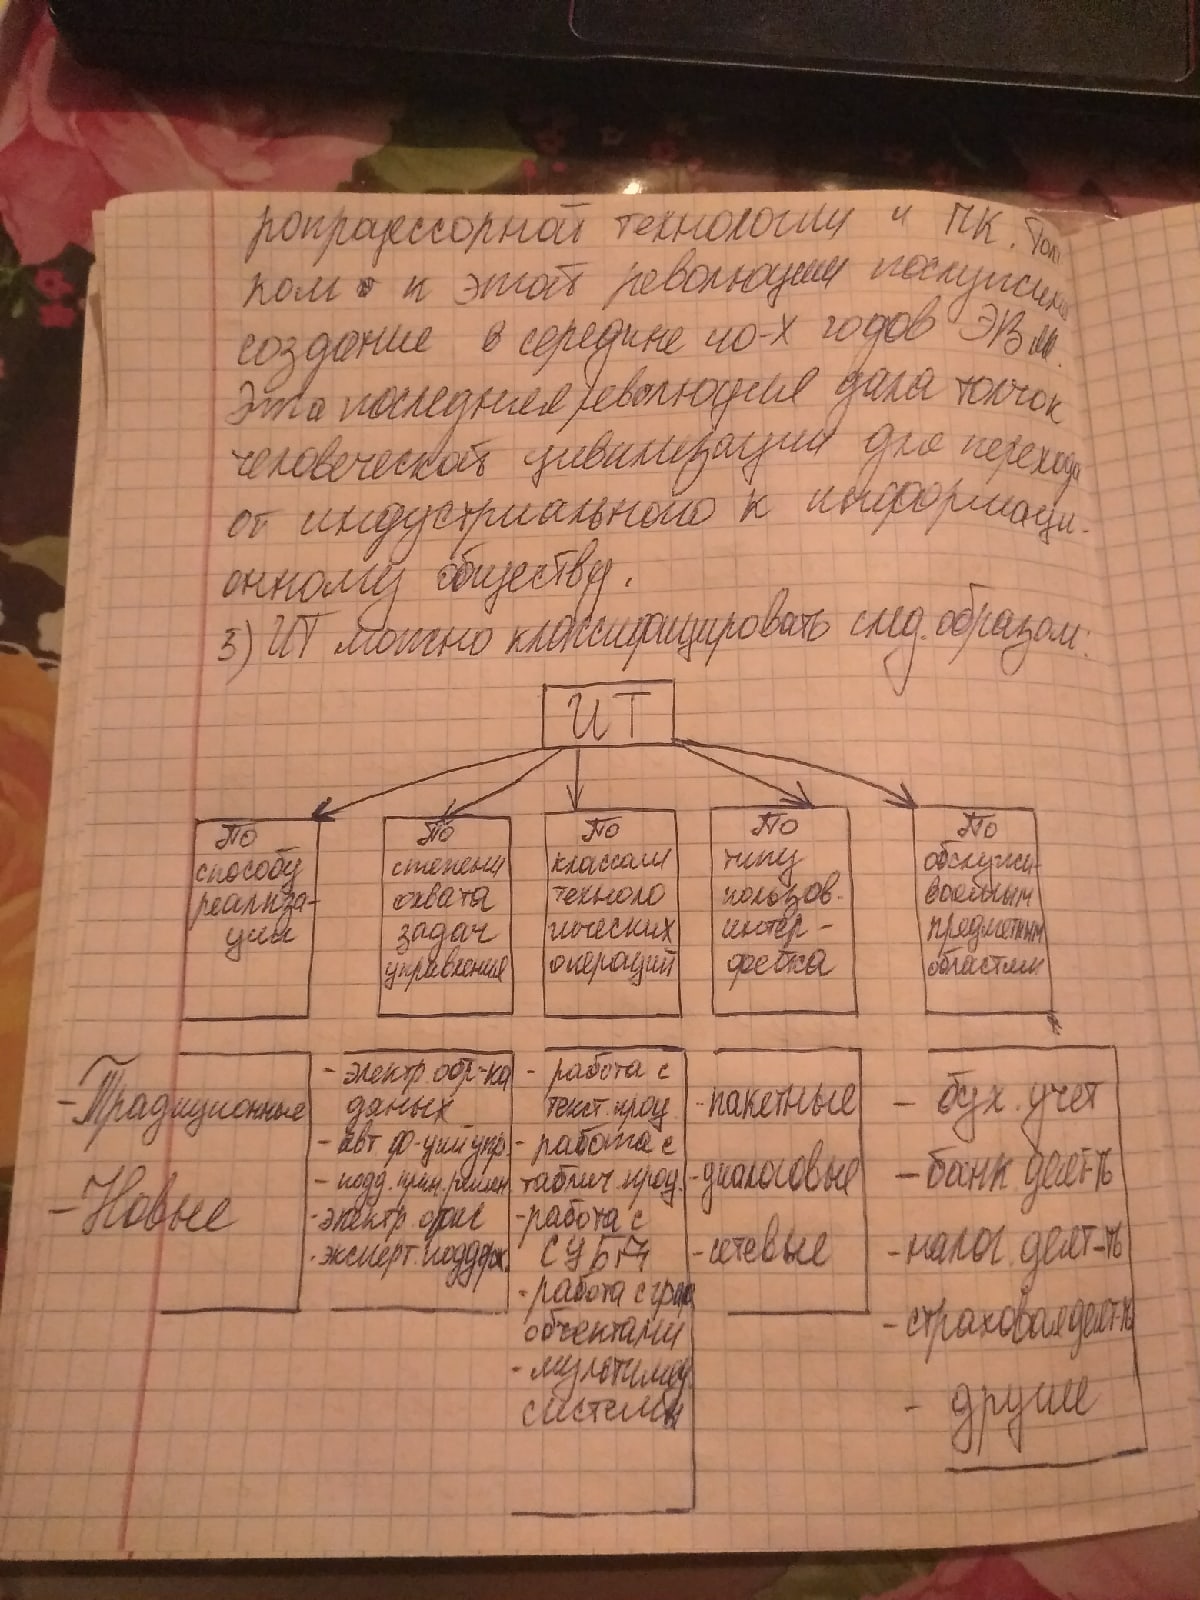 ропроцессорной технологии и ПК. Тол
ком к этой революции послужило
создание в середине 40-х годов ЭВМ.
Эта последняя революция дала толчок
человеческой цивилизации для перехода
от индустриального к информаци-
онному обществу.
3) ИТ можно классифицировать след. образом:
ИТ
По
способу
реализа-
ции
По
степени
охвата
задач
управления
По
классам
техноло
гических
операций
По
типу
пользов.
интер-
фейса
По
обслужи-
ваемым
предметным
областям
- Традиционные
- Новые
- электр. обр-ка
даных
- авт. ф-ций упр.
- подд. прин. решен
- электр. офис
- эксперт. поддерж.
- работа с
текст. проц.
- работа с
таблич. проц.
- работа с
СУБД
- работа с граф
объектами
- мультимед.
системы
- пакетные
- диалоговые
- сетевые
- бух. учет
- банк. деят-ть
- налог. деят-ть
- страховая деят-ть
- другие